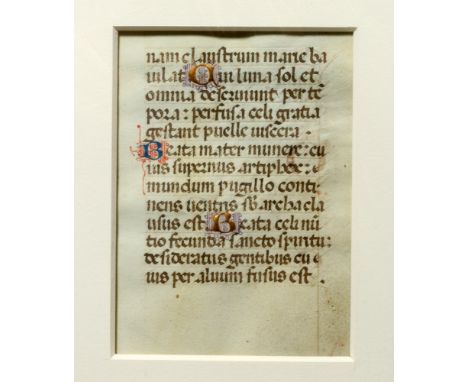 nam claustrum marie ba
iulat Qui luna sol et
omnia deseruiunt per tē
pora: perfusa celi gratia
gestant puelle uiscera.
Beata mater munere: cu
ius supernus artiphex:
mundum pugillo conti
nens uentris sb archa cla
usus est Beata celi nū
tio fecunda sancto spiritu:
desideratus gentibus cu
ius per aluum fusus est.